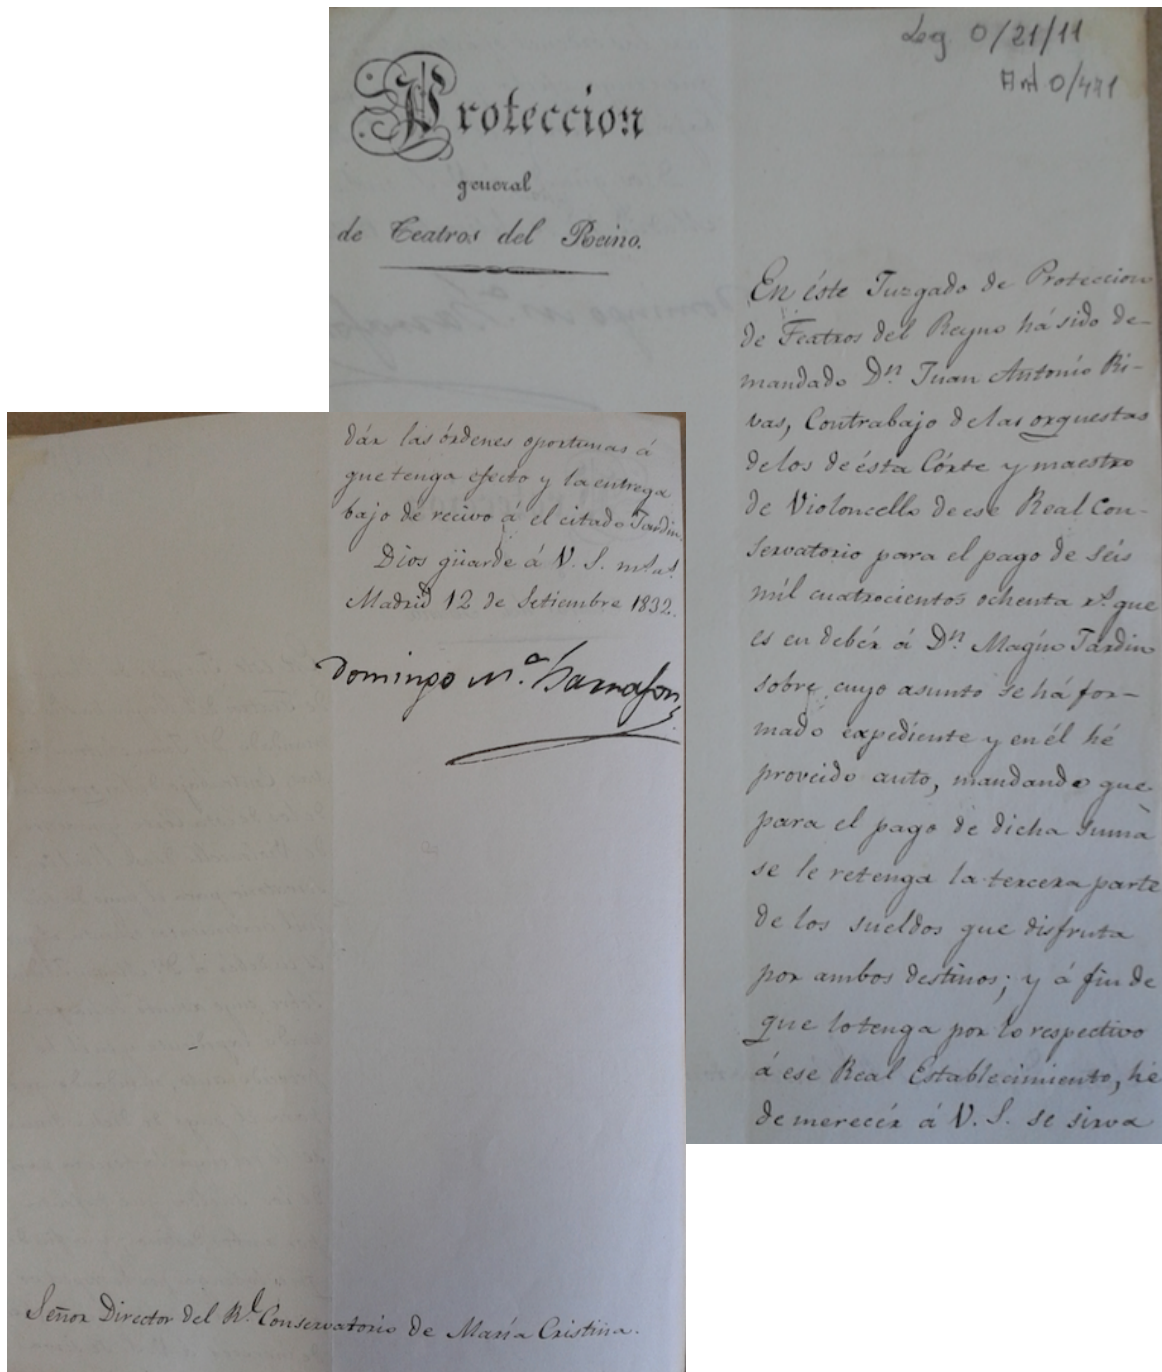 Leg 0/21/11
Ant 0/471
Proteccion
general
de Teatros del Reino.
En éste Juzgado de Proteccion
de Teatros del Reyno há sido de-
mandado Dn. Juan Antonio Ri-
vas, Contrabajo de las orquestas
de los de ésta Córte y maestro
de Violoncello de ese Real Con-
servatorio para el pago de séis
mil cuatrocientos ochenta rs. que
es en debér á Dn. Magin Jardin
sobre cuyo asunto se há for-
mado expediente y en él hé
proveido auto, mandando que
para el pago de dicha suma
se le retenga la tercera parte
de los sueldos que disfruta
por ambos destinos; y á fin de
que lo tenga por lo respectivo
á ese Real Establecimiento, hé
de merecér á V. S. se sirva
dár las órdenes oportunas á
que tenga efecto y la entrega
bajo de recivo á el citado Jardin.
Dios güarde á V. S. ms. as.
Madrid 12 de Setiembre 1832.
Domingo Ma. Barrafon
Señor Director del Rl. Conservatorio de María Cristina.